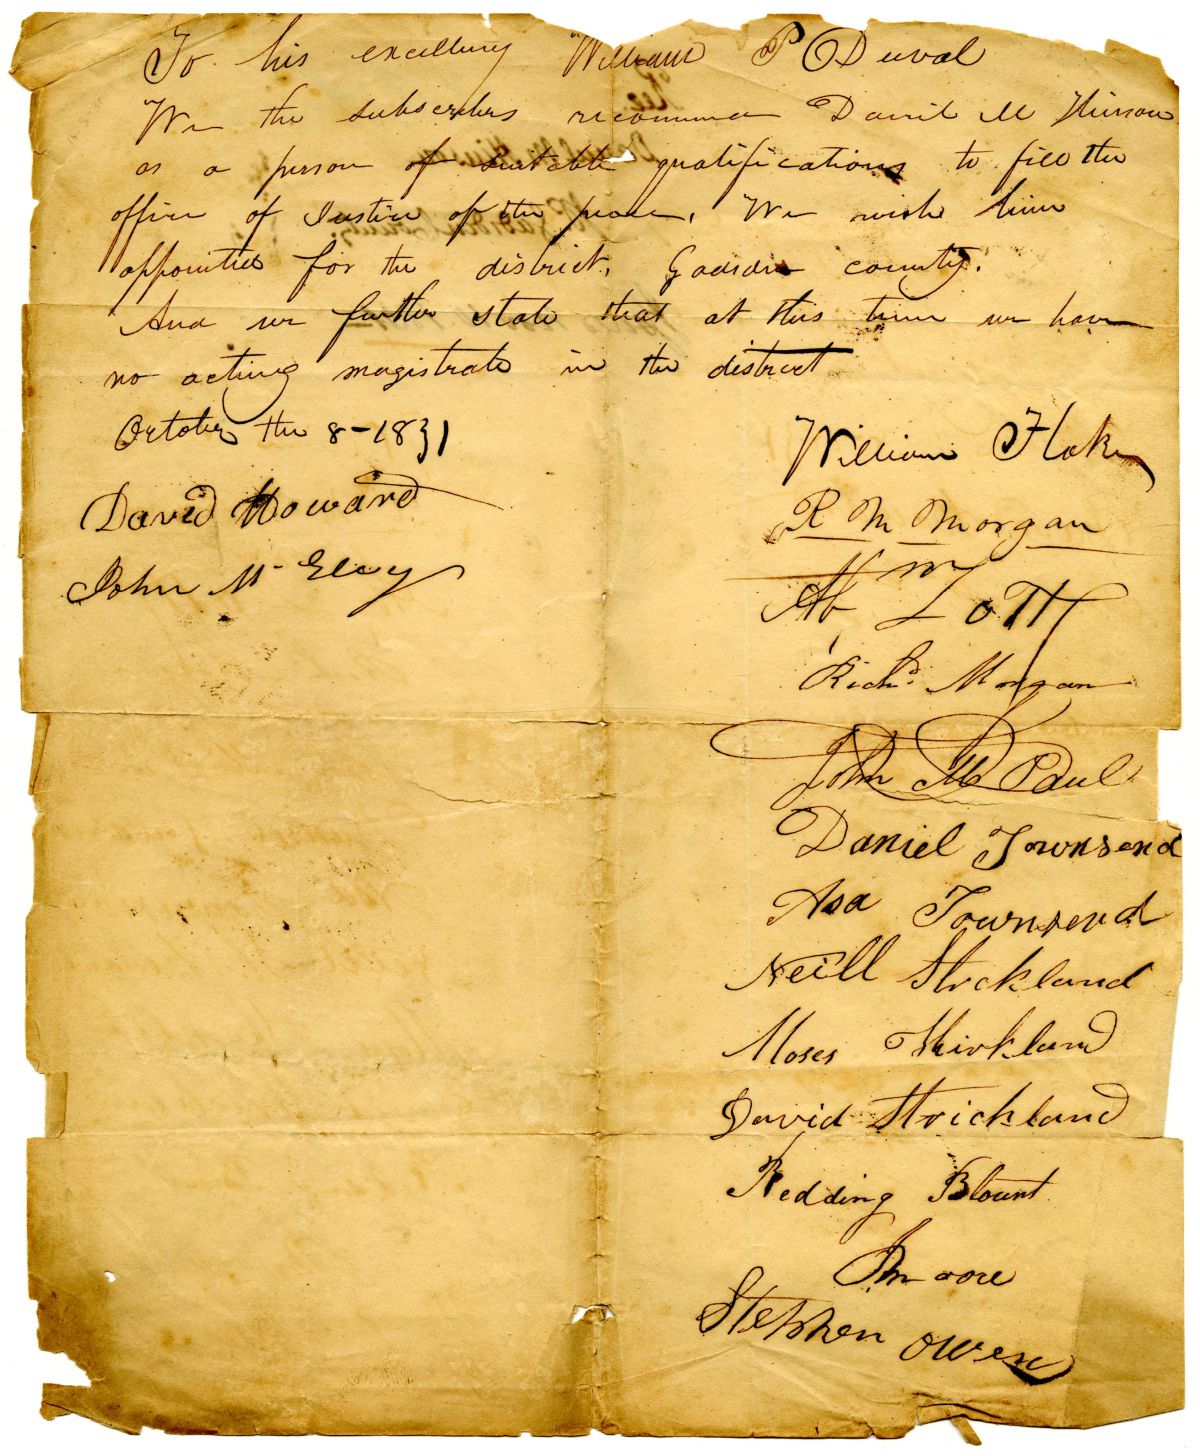 To his excellency William P Duval
We the subscribers recommend Daniel M Hinson
as a person of suitable qualifications to fill the
office of Justice of the peace, We wish him
appointed for the district, Gadsden county.
And we further state that at this time we have
no acting magistrate in the district
October the 8-1831
David Howard
John Mc Elvy
William Flake
R M Morgan
Ab m Lott
Richd. Morgan
John McPaul
Daniel Townsend
Asa Townsend
Neill Strickland
Moses Thirkland
David Strickland
Redding Blount
Stephen Owen